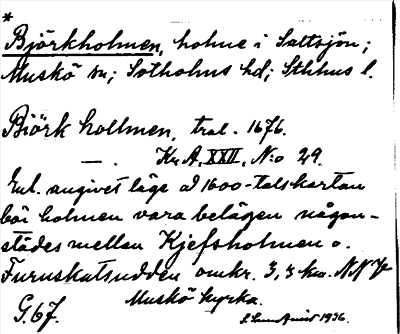 *
Björkholmen, holme i Saltsjön;
Muskö sn; Sotholms hd; Sthlms l.
Biörk hollmen, tral. 1676.
— . Kr. A, XXII, N:o 29.
Enl. angivet läge å 1600-talskartan
bör holmen vara belägen någon-
städes mellan Kjefsholmen o.
Furuskatsudden omkr. 3,3 km. NNV
Muskö kyrka.
G. 67. 1936.